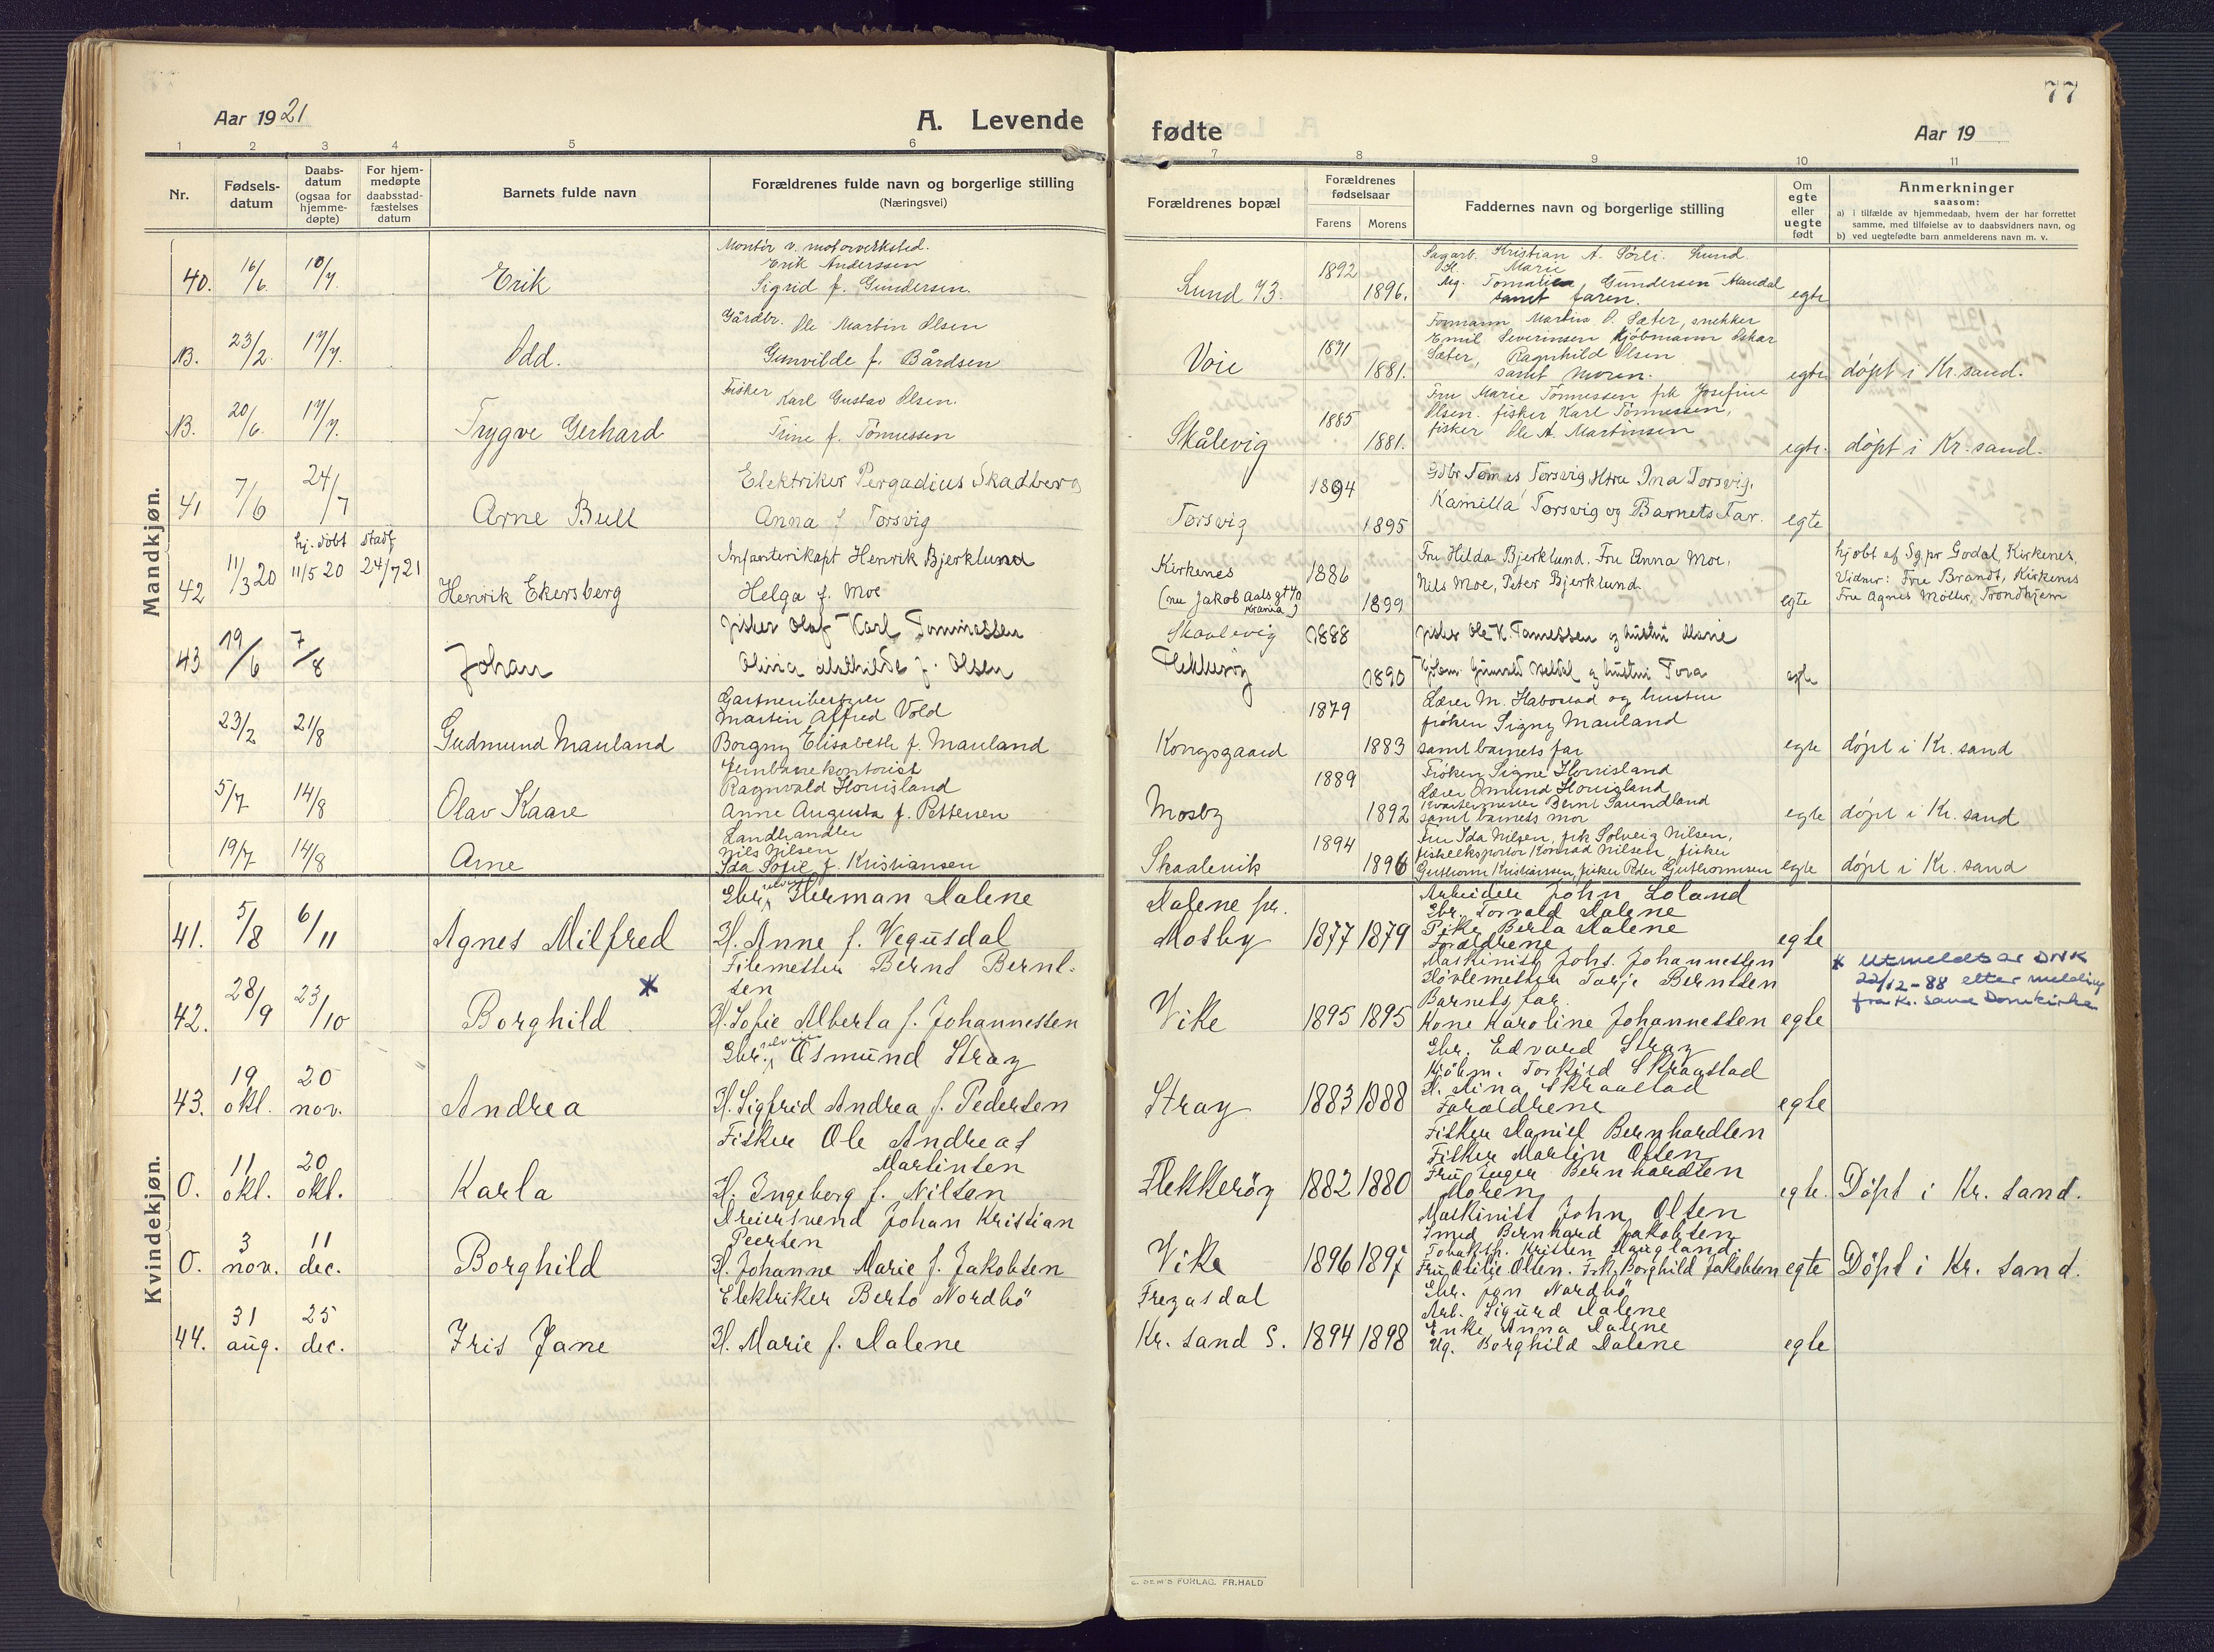 77
Aar 1921
A. Levende
fødte
Aar 19
1 2 3 4 5 6
7 8 9 10 11
Nr.
Fødsels-
datum
Daabs-
datum
(ogsaa for
hjemme-
døpte)
For hjem-
medøpte
daabsstad-
fæstelses
datum
Barnets fulde navn
Forældrenes fulde navn og borgerlige stilling
(Næringsvei)
Forældrenes bopæl
Forældrenes
fødselsaar
Farens Morens
Faddernes navn og borgerlige stilling
Om
egte
eller
uegte
født
Anmerkninger
saasom:
a) i tilfælde av hjemmedaab, hvem der har forrettet
samme, med tilføielse av to daabsvidners navn, og
b) ved uegtefødte barn anmelderens navn m. v.
Mandkjøn.
40. 16/6. 10/7. Erik
Montør v. motorverksted.
Erik Anderssen
Sigrid f. Gundersen.
Lund 73. 1892 1896.
Sagarb. Kristian A. Sørli. Lund.
H. Marie
Ug. Gundersen Mandal
samt faren.
egte
B. 23/2. 17/7. Odd.
Gårdbr. Ole Martin Olsen
Gunvilde f. Bårdsen
Voie 1871 1881.
Formann Martin O. Sæter, snekker
Emil Severinsen kjöbmann Oskar
Sæter, Ragnhild Olsen
samt moren.
egte døpt i Kr. sand.
B. 20/6. 17/7. Trygve Gerhard
Fisker Karl Gustav Olsen.
Trine f. Tønnessen
Skålevig 1885 1881.
Fru Marie Tønnessen frk Josefine
Olsen. fisker Karl Tønnessen,
fisker Ole A. Martinsen
egte. døpt i Kr. sand.
41 7/6 24/7 Arne Bull
Elektriker Pergadius Skadberg
Anna f Torsvig
Torsvig 1894 1895
Gdbr Tomas Torsvig Hstru Ina Torsvig,
Kamilla Torsvig og Barnets Far.
egte
hj. döbt stadf
42 11/3 20 11/5 20 24/7 21 Henrik Ekersberg
Infanterikapt Henrik Bjerklund
Helga f. Moe
Kirkenes
(nu Jakob Aals gt 40
Krania)
1886 1899
Fru Hilda Bjerklund. Fru Anna Moe,
Nils Moe, Peter Bjerklund.
egte
hjdbt af Sg.pr Godal, Kirkenes,
Vidner: Frue Brandt, Kirkenes
Fru Agnes Møller, Trondhjem
43 19/6 7/8 Johan
Fisker Olaf Karl Tønnessen
Olivia Mathilde f. Olsen
Skaalevig
Flekkerøy
1888 1890
Fisker Ole K. Tønnessen og hustru Marie
og hustru Tora
egte
23/2 21/8 Gudmund Mauland
Gartneribestyrer
Martin Alfred Vold
Borgny Elisabeth f. Mauland
Kongsgaard 1879 1883
Lærer M. Habostad og hustru
frøken Signy Mauland
samt barnets far
egte døpt i Kr. sand
5/7 14/8 Olav Kaare
Jernbanekontorist
Ragnvald Hornsland
Anne Augusta f. Pettersen
Mosby 1889 1892
Frøken Signe Hornsland
Lærer Omund Hornsland
Kvartermester Bernt Saundland
samt barnets mor
egte døpt i Kr. sand
19/7 14/8 Arne
Landhandler
Nils Nilsen
Ida Sofie f. Kristiansen
Skaalevik 1894 1896
Fru Ida Nilsen, frk. Solveig Nilsen,
fiskeeksportør Konrad Nilsen, fisker
Guthorm Kristiansen, fisker Peder Guthormsen
egte døpt i Kr. sand
Kvindekjøn.
41. 5/8 6/11 Agnes Milfred
Gbr. selveier Herman Dalene
H. Anne f. Vegusdal
Dalene pr.
Mosby 1877 1879
Arbeider John Loland
Gbr. Torvald Dalene
Pike Berta Dalene
Forældrene
egte
42. 28/9 23/10 Borghild *
Filemester Bernt Bernt-
sen
H. Sofie Alberta f. Johannessen
Vike 1895 1895
Maskinist Johs. Johannessen
Høvlemester Terje Berntsen
Barnets far.
Kone Karoline Johannessen
egte
* Utmeldt av DNK
22/12-88 etter melding
fra Kr. sand Domkirke
43. 19 okt. 20 nov. Andrea
Gbr. selveier Osmund Stray
H. Sigfrid Andrea f. Pedersen
Stray 1883 1888
Gbr. Edvard Stray
Kjöbm. Torkjed Skraastad
H. Dina Skraastad
Forældrene
egte
O. 11 okt. 20 okt. Karla
Fisker Ole Andreas
Martinsen
H. Ingeborg f. Nilsen
Flekkeröy 1882 1880
Fisker Daniel Bernhardsen
Fisker Martin Olsen
Fru Inger Bernhardsen
Moren
egte. Döpt i Kr. sand.
O. 3 nov. 11 dec. Borghild
Dreiersvend Johan Kristian
Peersen
H. Johanne Marie f. Jakobsen
Vike 1896 1897
Maskinist John Olsen
Smed Bernhard Jakobsen
Tobaksh. Kristen Haugland.
Fru Otilie Olsen. Frk. Borghild Jakobsen
egte Döpt i Kr. sand.
44. 31 aug. 25 dec. Iris Jane
Elektriker Berto Nordbö
H. Marie f. Dalene
Fregasdal
Kr. sand S. 1894 1898
Gbr. Jon Nordbö
Arb. Sigurd Dalene
Enke Anna Dalene
Ug. Borghild Dalene
egte
E. SEM'S FORLAG. FR.HALD